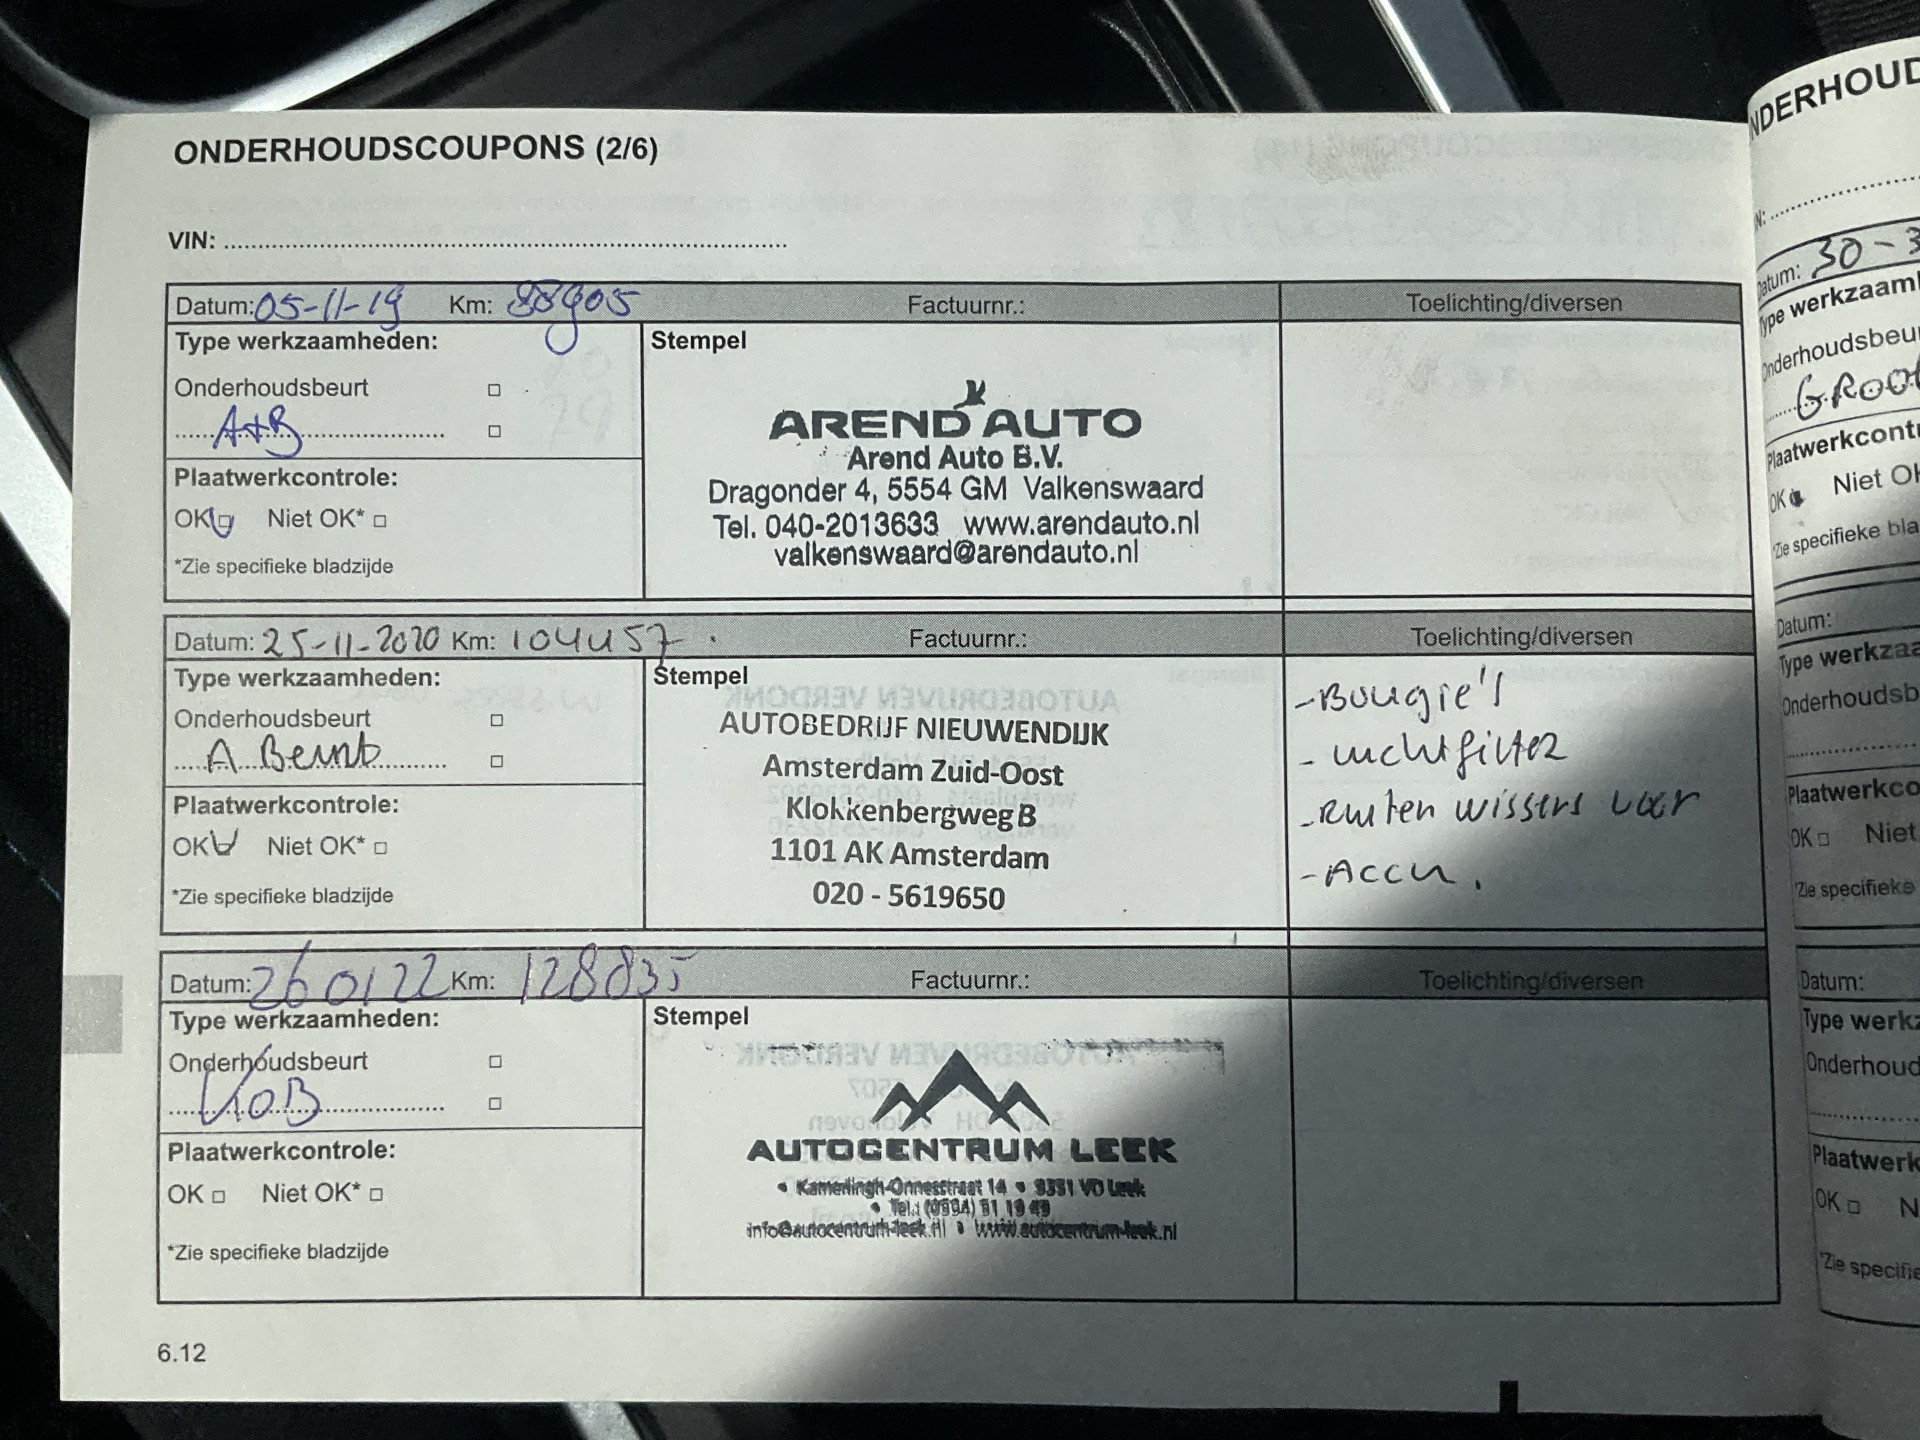 ONDERHOUDSCOUPONS (2/6)
VIN:
Datum: 05-11-19 Km: 88905 Factuurnr.: Toelichting/diversen
Type werkzaamheden:
Stempel
Onderhoudsbeurt
A+B
Plaatwerkcontrole:
OK Niet OK*
*Zie specifieke bladzijde
AREND AUTO
Arend Auto B.V.
Dragonder 4, 5554 GM Valkenswaard
Tel. 040-2013633 www.arendauto.nl
valkenswaard@arendauto.nl
Datum: 25-11-2020 Km: 104457 Factuurnr.: Toelichting/diversen
Type werkzaamheden:
Stempel
Onderhoudsbeurt
A Beurt
Plaatwerkcontrole:
OK Niet OK*
*Zie specifieke bladzijde
AUTOBEDRIJF NIEUWENDIJK
Amsterdam Zuid-Oost
Klokkenbergweg B
1101 AK Amsterdam
020 - 5619650
- Bougie's
- Luchtfilter
- Ruiten wissers voor
- Accu.
Datum: 260122 Km: 128835 Factuurnr.: Toelichting/diversen
Type werkzaamheden:
Stempel
Onderhoudsbeurt
KOB
Plaatwerkcontrole:
OK Niet OK*
*Zie specifieke bladzijde
AUTOCENTRUM LEEK
• Kamerlingh-Onnesstraat 14 • 9351 VD Leek
• Tel.: (0594) 51 19 49
info@autocentrum-leek.nl • www.autocentrum-leek.nl
6.12
NDERHOUD
N:
Datum: 30-3
Type werkzaam
Onderhoudsbeu
GROOT
Plaatwerkcontr
OK Niet OK
*Zie specifieke bla
Datum:
Type werkzaa
Onderhoudsb
Plaatwerkco
OK Niet
*Zie specifieke
Datum:
Type werkz
Onderhoud
Plaatwerk
OK N
*Zie specifie